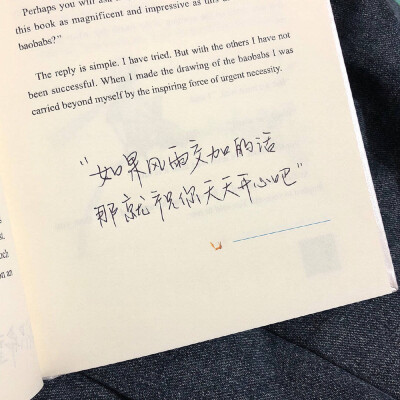 Perhaps you will ask
this book as magnificent and impressive as this
baobabs?"
The reply is simple. I have tried. But with the others I have not
been successful. When I made the drawing of the baobabs I was
carried beyond myself by the inspiring force of urgent necessity.
“如果风雨交加的话
那就祝你天天开心吧”